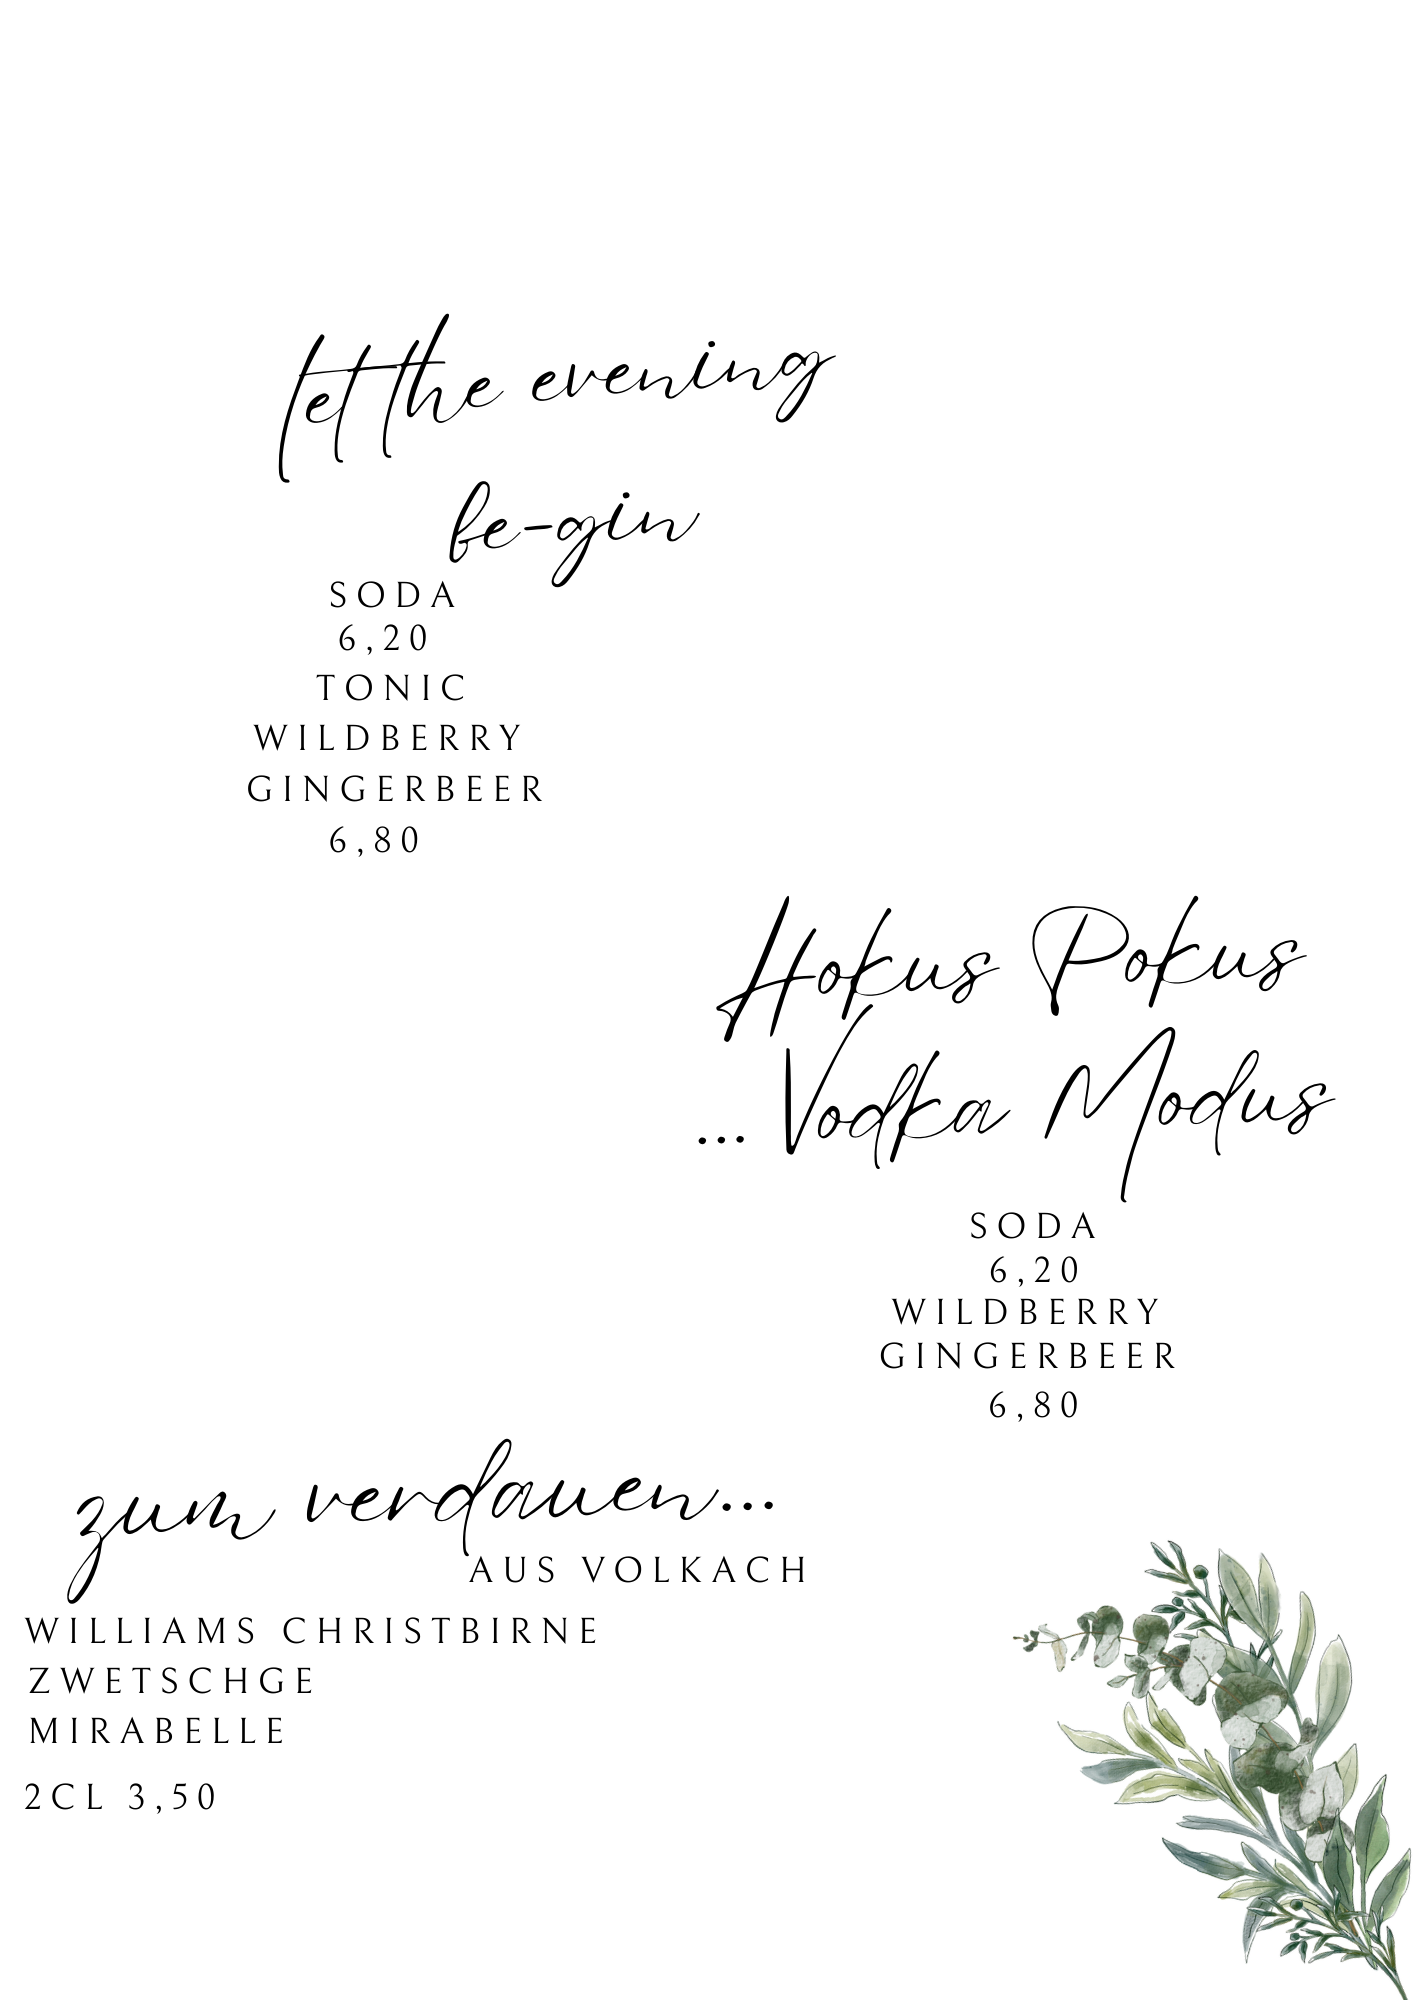 let the evening
be-gin
SODA
6,20
TONIC
WILDBERRY
GINGERBEER
6,80
Hokus Pokus
... Vodka Modus
SODA
6,20
WILDBERRY
GINGERBEER
6,80
zum verdauen...
AUS VOLKACH
WILLIAMS CHRISTBIRNE
ZWETSCHGE
MIRABELLE
2CL 3,50